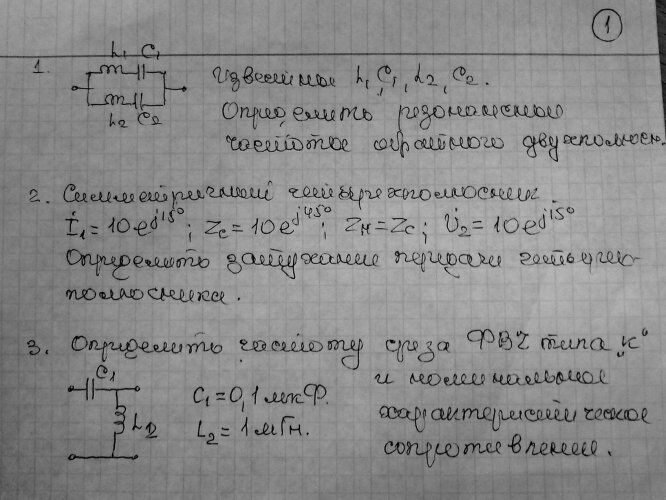 1
1. L₁ C₁
L₂ C₂
Известные L₁, C₁, L₂, C₂.
Определить резонансные
частоты обратного двухполюсн.
2. Симметричный четырехполюсник.
İ₁ = 10e^j15°; Zc = 10e^j45°; Zн = Zc; U̇₂ = 10e^j15°
Определить затухание передачи четырех-
полюсника.
3. Определить частоту среза ФВЧ типа „К"
и номинальное
характеристическое
сопротивление.
C₁
L₂
C₁ = 0,1 мкФ.
L₂ = 1 мГн.